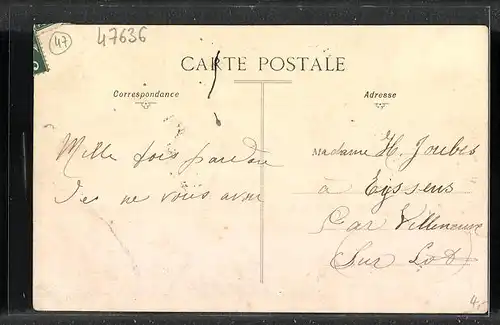 47
47636
CARTE POSTALE
Correspondance
Adresse
Mille fois pardon
de ne vous avoir
Madame H. Joubes
à Eysses
Par Villeneuve
(Sur Lot)
4,-